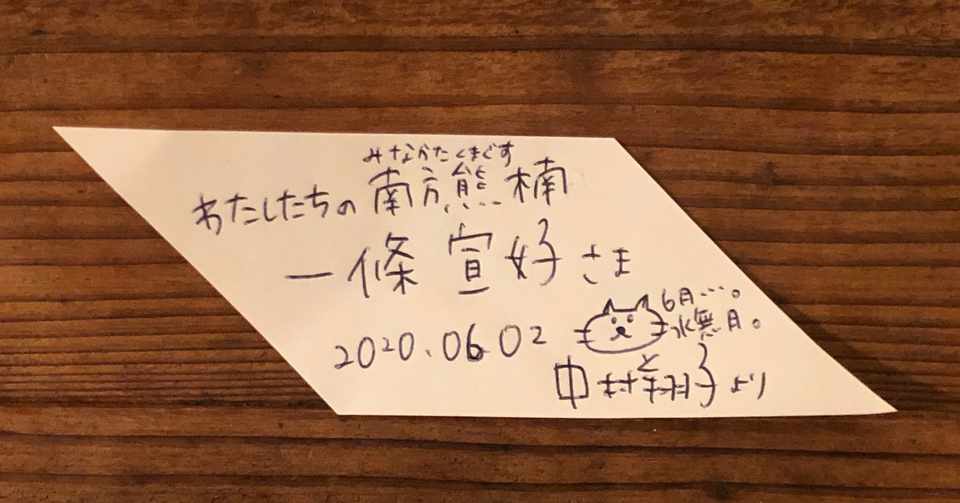 みなかたくまぐす
わたしたちの 南方熊楠
一條 宣好 さま
2020.06.02
6月…。
水無月。
中村翔子より